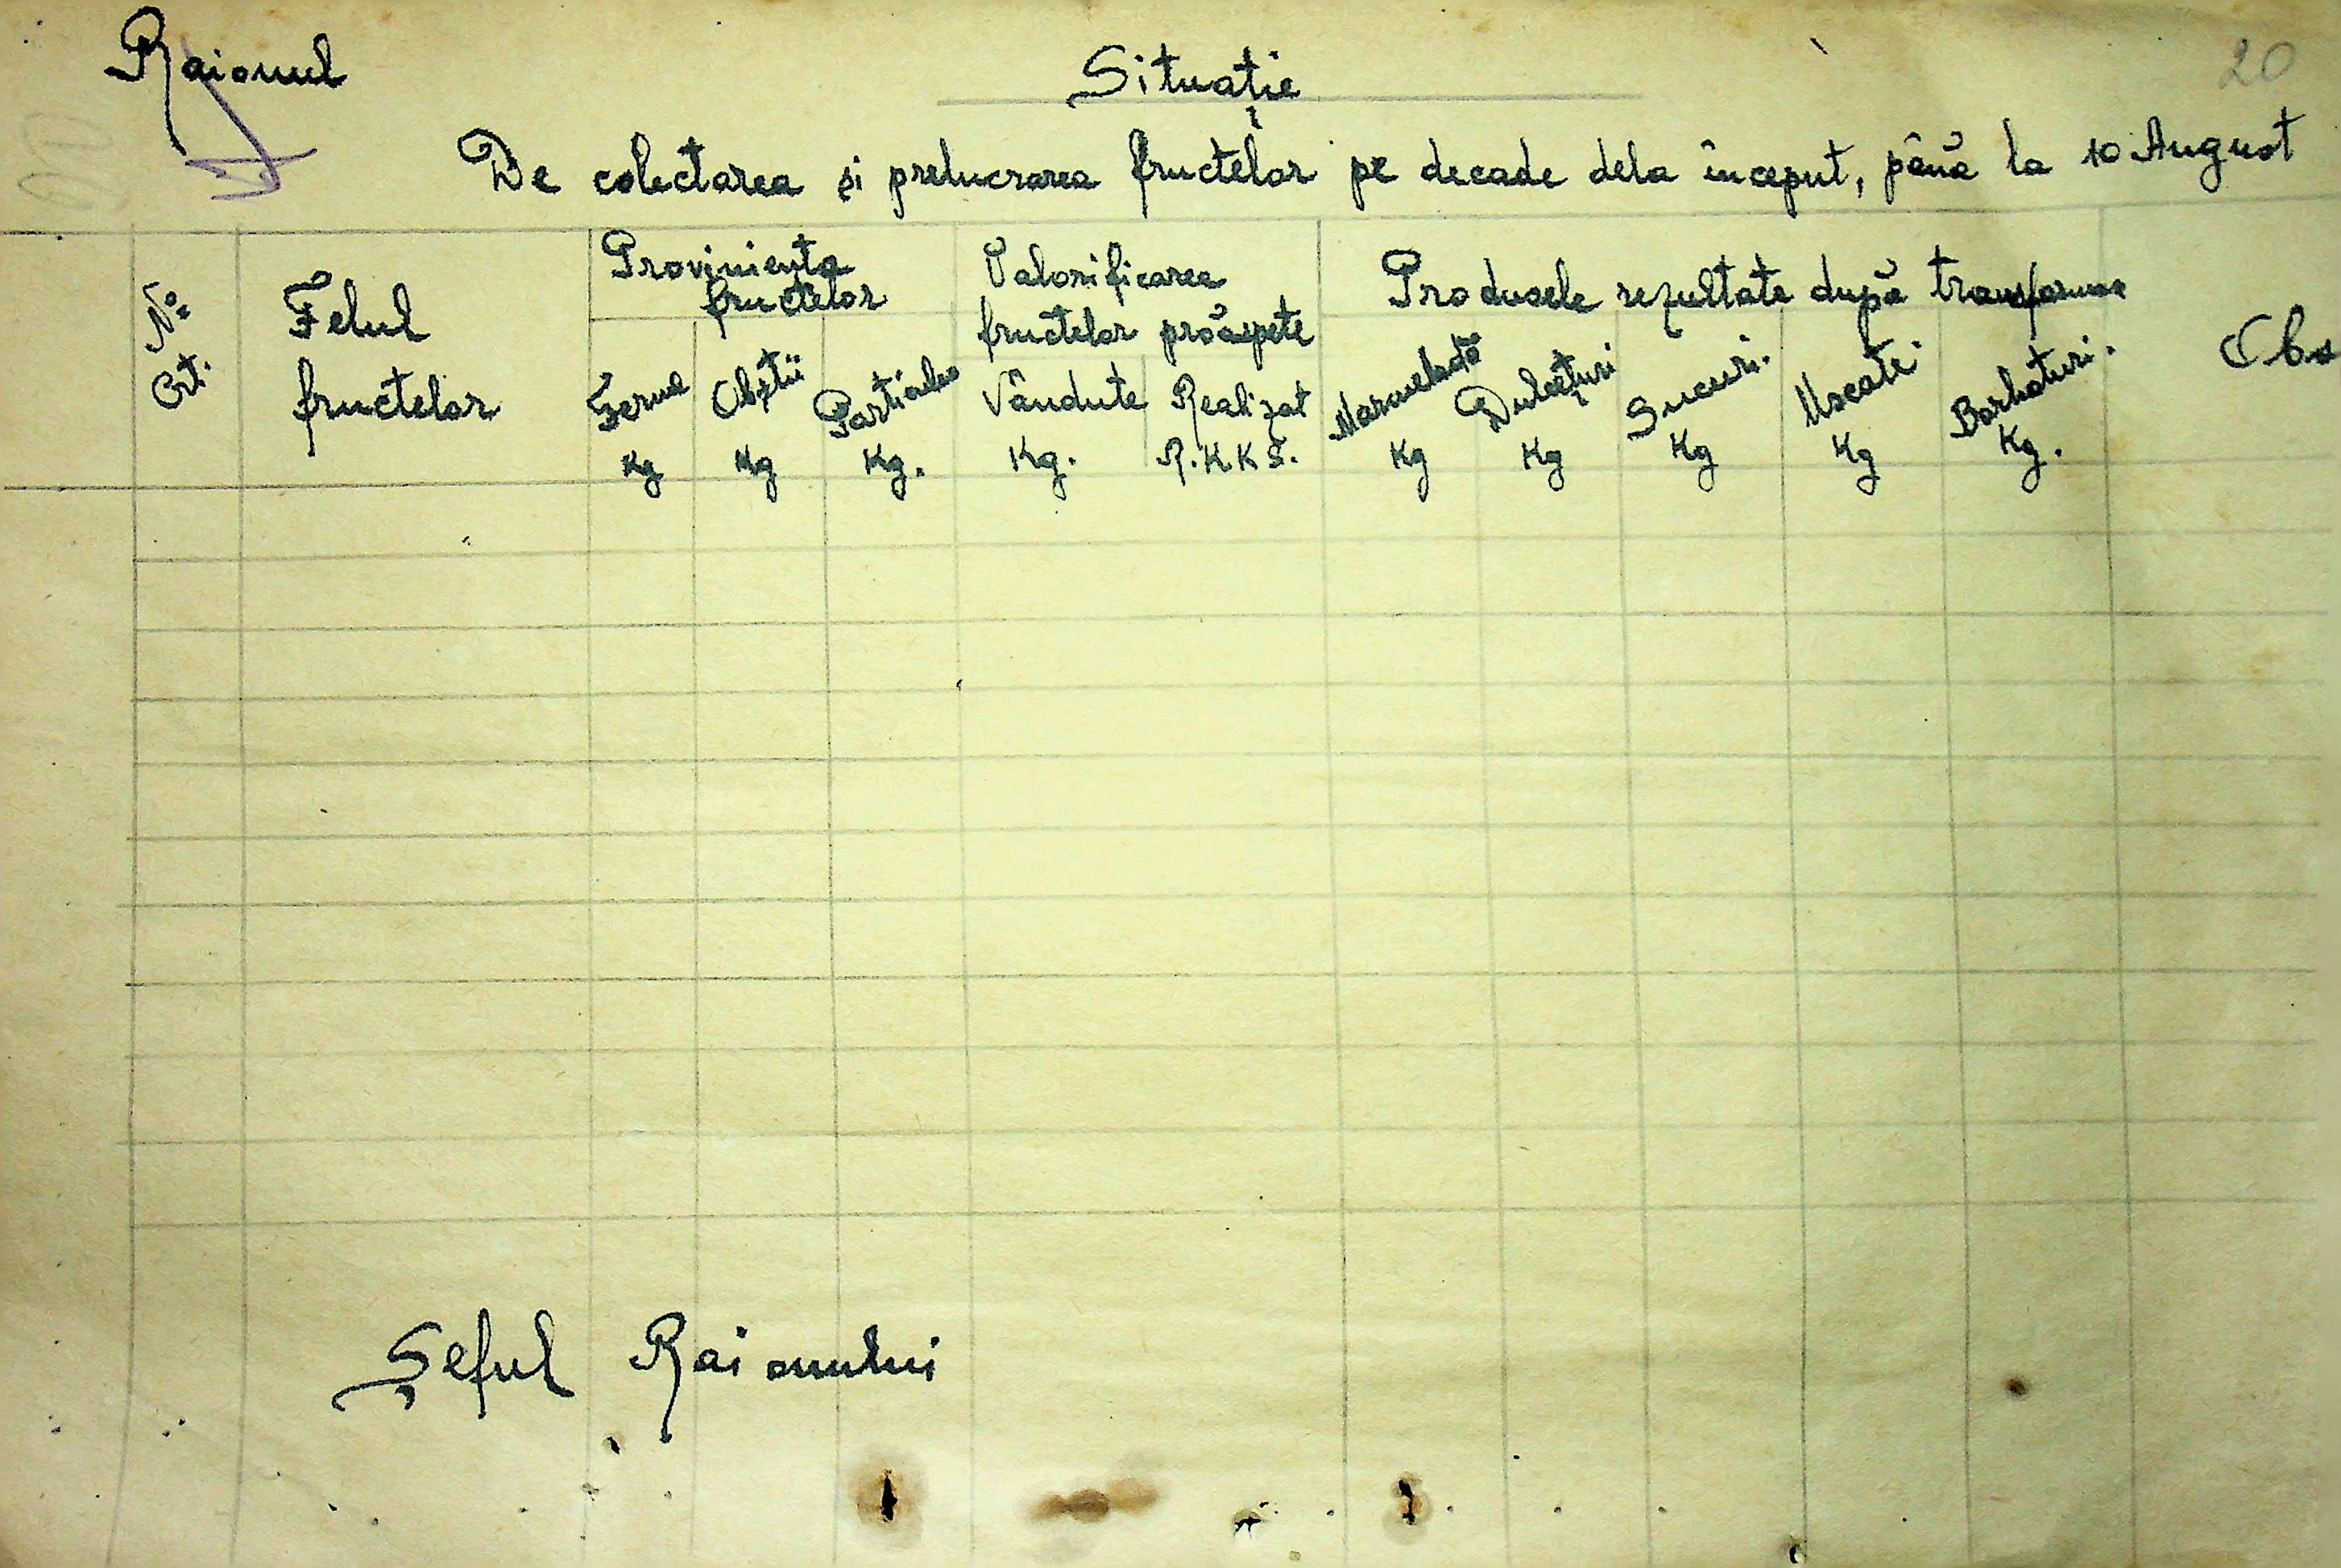 Raionul
Situație
20
De colectarea și prelucrarea fructelor pe decade dela început, până la 10 August
No
Crt.
Felul
fructelor
Proviniența
fructelor
Ferme
Kg
Obștii
Kg
Kg.
Valorificarea
fructelor proaspete
Vândute
Kg.
Realizat
R.K.K.S.
Produsele rezultate după transformare
Marmeladă
Kg
Dulcețuri
Kg
Sucuri.
Kg
Uscate.
Kg
Borhoturi.
Kg.
Obs
Șeful Raionului